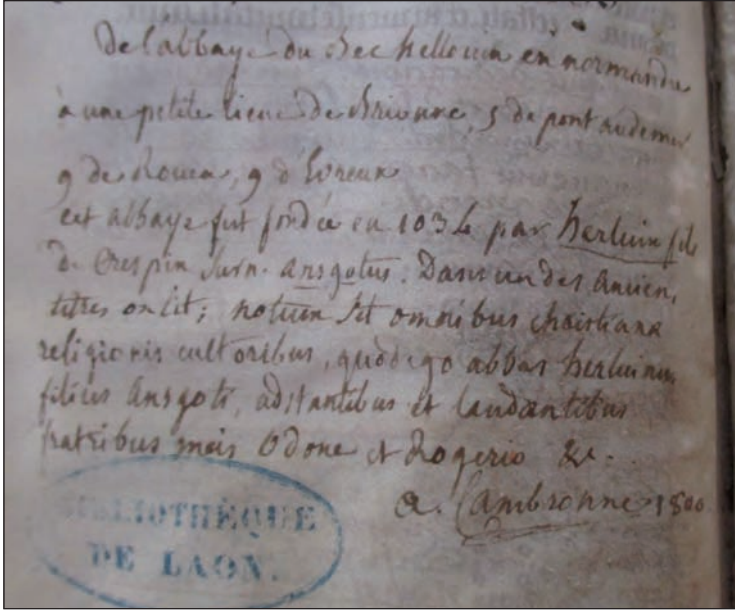 De l'abbaye du Bec hellouin en normandie
à une petite lieue de Brionne, 5 de pont audemer
9 de Rouen, 9 d'Evreux
cet abbaye fut fondée en 1034 par herluin fils
de Crespin surn. ansgotus. Dans un des ancien,
titres on lit; notum sit omnibus christiana
religionis cultoribus, quod ego abbas herluinus
filius ansgoti, adstantibus et laudantibus
fratribus meis Odone et Rogerio &c.
a. Cambronne 1800
BIBLIOTHÈQUE
DE LAON.